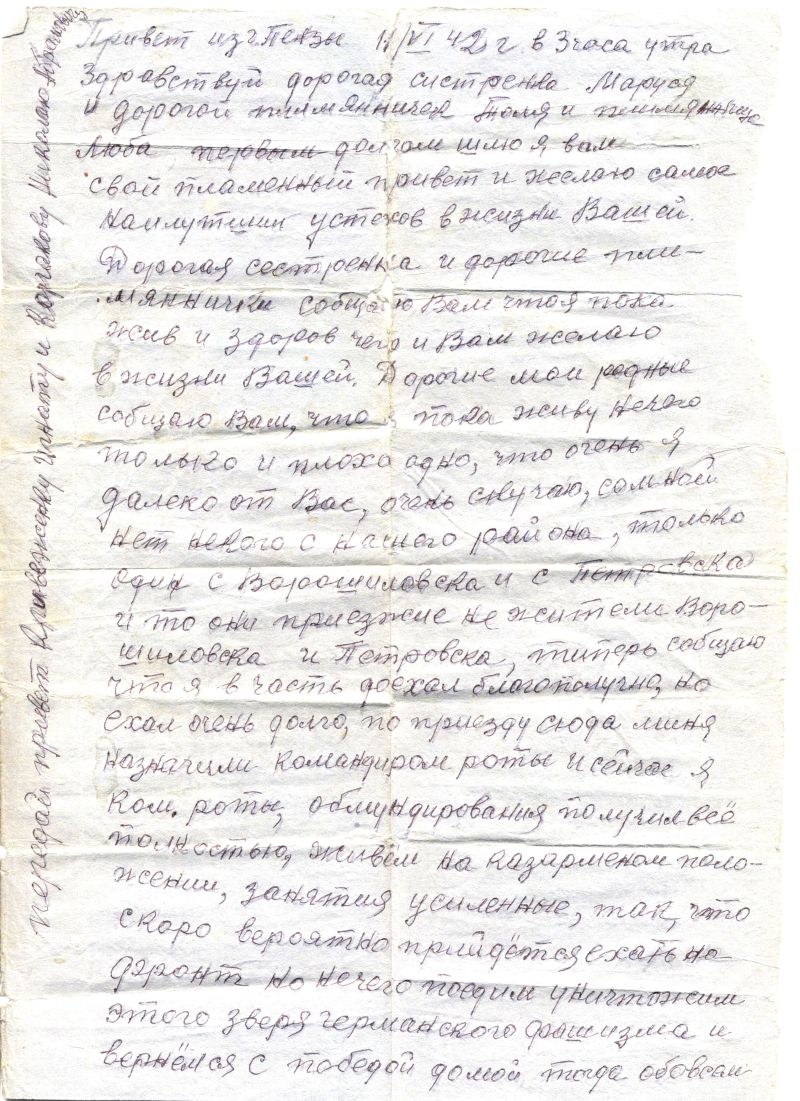 Привет из г. Пензы 11/VI 42 г в 3 часа утра
Здравствуй дорогая систренка Маруся
и дорогой плимянничек Толя и плимянница
Люба, первым долгом шлю я вам
свой пламенный привет и желаю самое
наилутших успехов в жизни Вашей.
Дорогая сестренка и дорогие пли-
мяннички собщаю Вам что я пока
жив и здоров чего и Вам желаю
в жизни Вашей. Дорогие мои родные
собщаю Вам, что я пока живу нечего
только и плоха одно, что очень я
далеко от Вас, очень скучаю, сомной
нет некого с нашего района, только
один с Ворошиловска и с Петровска
и то они приезжие не жители Воро-
шиловска и Петровска, типерь собщаю
что я в часть доехал благополучно, но
ехал очень долго, по приезду сюда миня
назначили командиром роты и сейчас я
Ком. роты, обмундирования получил всё
полностью, живём на казарменом поло-
жении, занятия усиленные, так, что
скоро вероятно прийдётся ехать на
фронт но нечего поедим уничтожим
этого зверя германского фышизма и
вернёмся с победой домой тогда обовсем
передай привет Игнату и Николаю